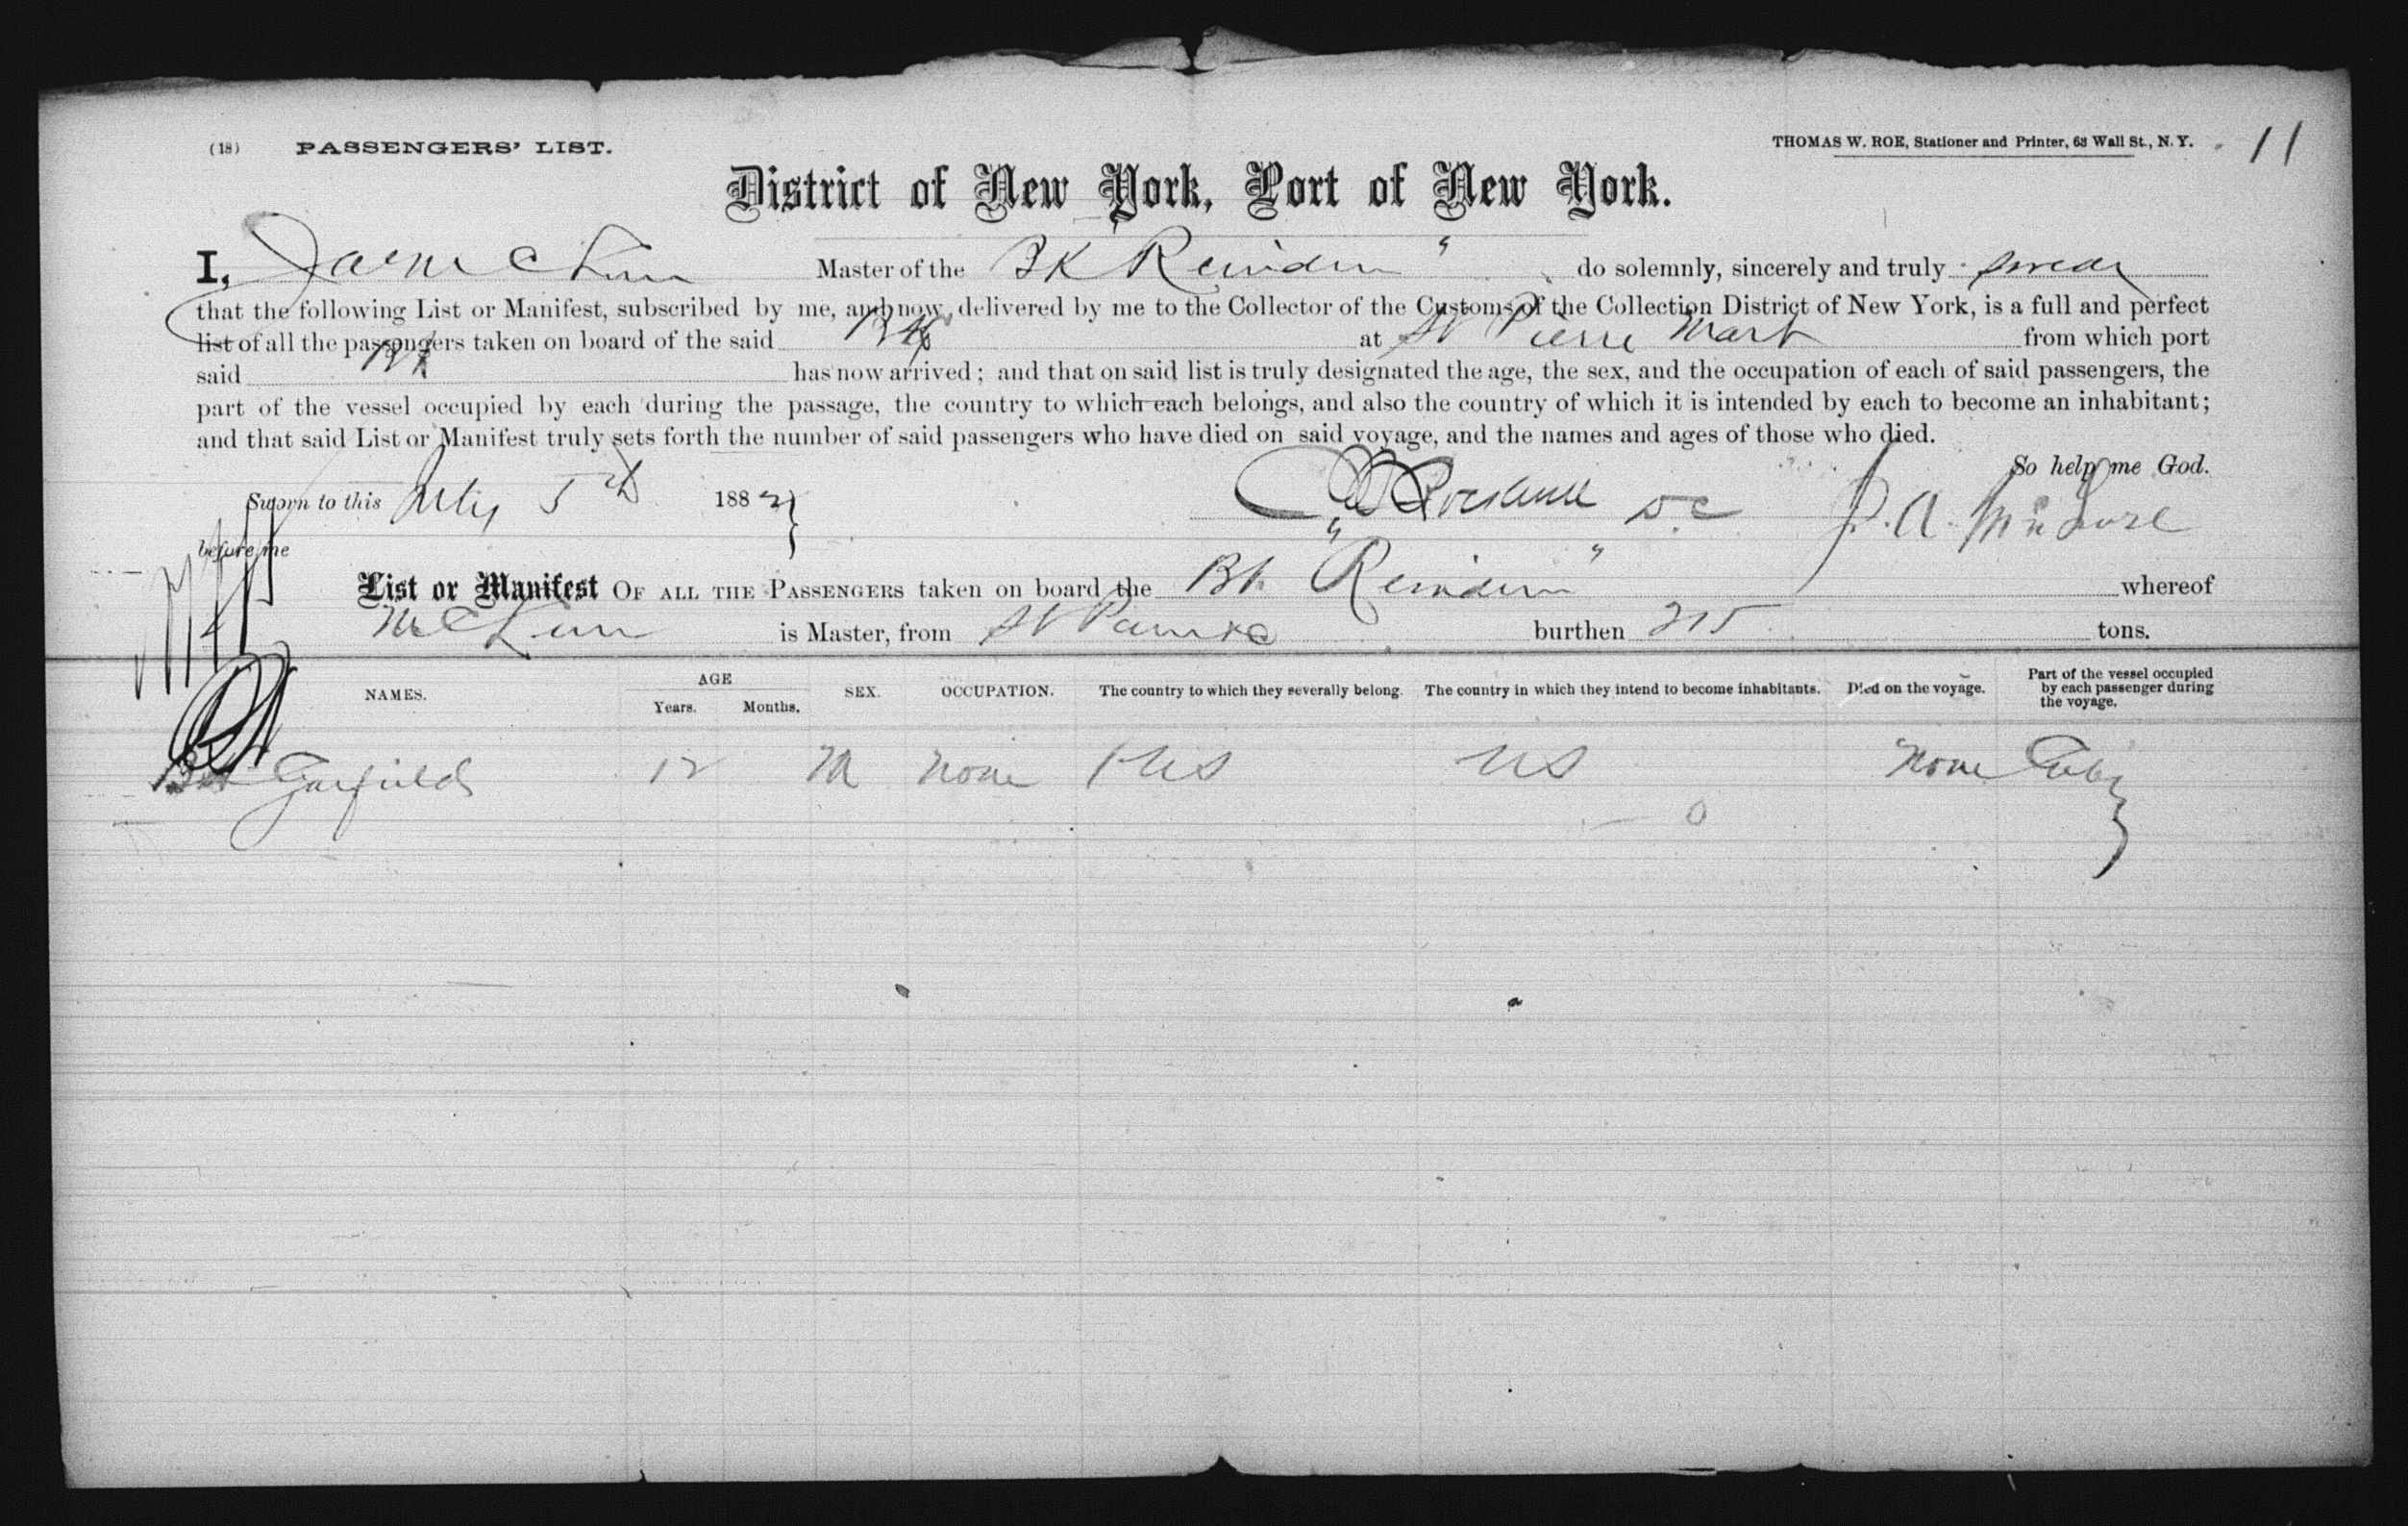 (18) PASSENGERS' LIST.
THOMAS W. ROE, Stationer and Printer, 63 Wall St., N. Y.
11
District of New York, Port of New York.
I, Master of the Bk do solemnly, sincerely and truly swear
that the following List or Manifest, subscribed by me, and now delivered by me to the Collector of the Customs of the Collection District of New York, is a full and perfect
list of all the passengers taken on board of the said Bk at St Pierre Mart from which port
said Bk has now arrived; and that on said list is truly designated the age, the sex, and the occupation of each of said passengers, the
part of the vessel occupied by each during the passage, the country to which each belongs, and also the country of which it is intended by each to become an inhabitant;
and that said List or Manifest truly sets forth the number of said passengers who have died on said voyage, and the names and ages of those who died.
So help me God.
Sworn to this July 5th 1883
before me
List or Manifest OF ALL THE PASSENGERS taken on board the Bk whereof
is Master, from St Pierre burthen 215 tons.
NAMES. AGE Years. Months. SEX. OCCUPATION. The country to which they severally belong. The country in which they intend to become inhabitants. Died on the voyage. Part of the vessel occupied by each passenger during the voyage.
Garfield 12 M None US US None Cabin